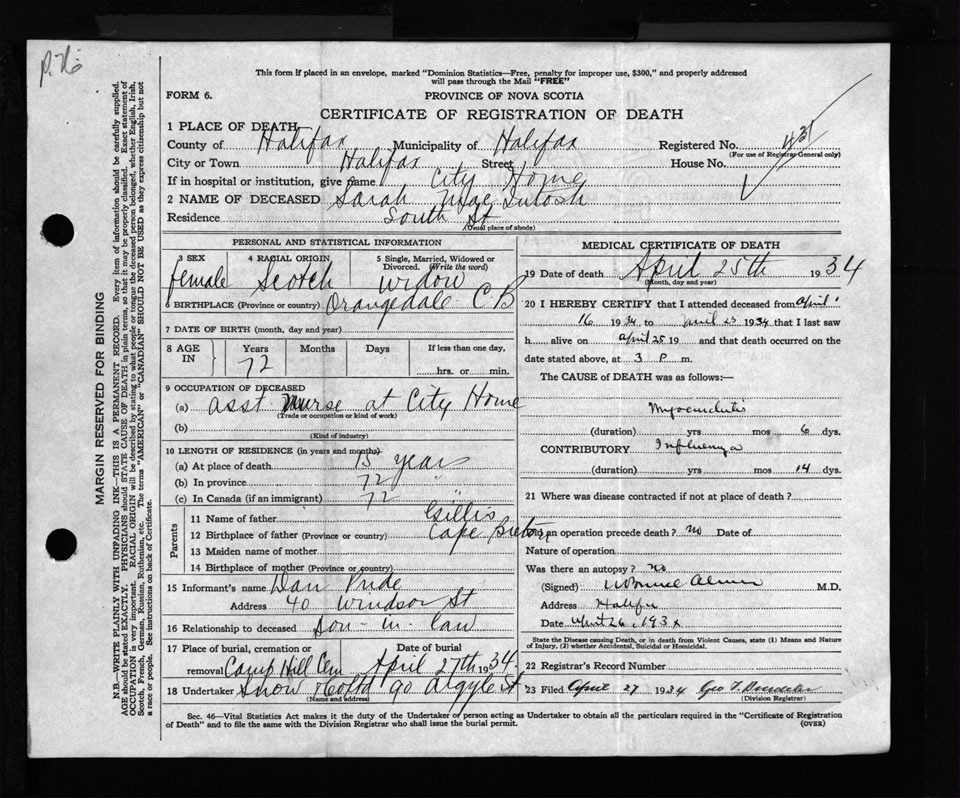 This form if placed in an envelope, marked "Dominion Statistics—Free, penalty for improper use, $300," and properly addressed
will pass through the Mail "FREE"
FORM 6.
PROVINCE OF NOVA SCOTIA
CERTIFICATE OF REGISTRATION OF DEATH
1 PLACE OF DEATH
County of Halifax Municipality of Halifax Registered No.
(For use of Registrar-General only)
City or Town Halifax Street House No.
If in hospital or institution, give name City Home
2 NAME OF DECEASED Sarah MacIntosh
Residence South St
(Usual place of abode)
PERSONAL AND STATISTICAL INFORMATION
3 SEX female
4 RACIAL ORIGIN Scotch
5 Single, Married, Widowed or Divorced. (Write the word) Widow
6 BIRTHPLACE (Province or country) Orangedale C B
7 DATE OF BIRTH (month, day and year)
8 AGE IN Years 72 Months Days If less than one day, hrs. or min.
9 OCCUPATION OF DECEASED
(a) asst nurse at City Home
(Trade or occupation or kind of work)
(b)
(Kind of industry)
10 LENGTH OF RESIDENCE (in years and months)
(a) At place of death 15 years
(b) In province 72 "
(c) In Canada (if an immigrant) 72 "
Parents
11 Name of father Gillis
12 Birthplace of father (Province or country) Cape Breton
13 Maiden name of mother
14 Birthplace of mother (Province or country)
15 Informant's name Dan Pride
Address 40 Windsor St
16 Relationship to deceased Son-in-law
17 Place of burial, cremation or removal Camp Hill Cem Date of burial April 27th 1934
18 Undertaker Snow & Co Ltd 90 Argyle St
(Name and address)
MEDICAL CERTIFICATE OF DEATH
19 Date of death April 25th 1934
(Month, day and year)
20 I HEREBY CERTIFY that I attended deceased from April
16 1934 to April 25 1934 that I last saw
h alive on April 25 19 and that death occurred on the
date stated above, at 3 P m.
The CAUSE of DEATH was as follows:—
Myocarditis
(duration) yrs mos 6 dys.
CONTRIBUTORY Influenza
(duration) yrs mos 14 dys.
21 Where was disease contracted if not at place of death?
Did an operation precede death? no Date of
Nature of operation
Was there an autopsy? no
(Signed) M.D.
Address Halifax
Date April 26, 193
State the Disease causing Death, or in death from Violent Causes, state (1) Means and Nature
of Injury, (2) whether Accidental, Suicidal or Homicidal.
22 Registrar's Record Number
23 Filed April 27 1934 Geo T.
(Division Registrar)
Sec. 46—Vital Statistics Act makes it the duty of the Undertaker or person acting as Undertaker to obtain all the particulars required in the "Certificate of Registration
of Death" and to file the same with the Division Registrar who shall issue the burial permit.
(OVER)
MARGIN RESERVED FOR BINDING
N.B.—WRITE PLAINLY WITH UNFADING INK—THIS IS A PERMANENT RECORD. Every item of information should be carefully supplied.
AGE should be stated EXACTLY. PHYSICIANS should STATE CAUSE OF DEATH in plain terms, so that it may be properly classified. Exact statement of
OCCUPATION is very important. RACIAL ORIGIN will be described by stating to what people or tongue the deceased person belonged, whether English, Irish,
Scotch, French, German, Russian, Ruthenian, etc. The terms "AMERICAN" or "CANADIAN" SHOULD NOT BE USED as they express citizenship but not
a race or people. See instructions on back of Certificate.